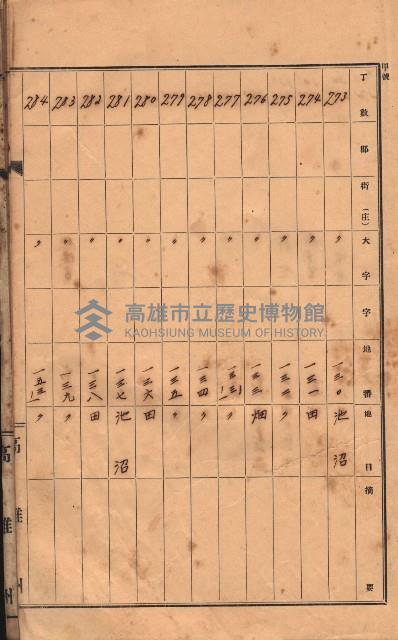 甲號
丁數 郡 街(庄) 大字 字 地番 地目 摘要
273 〃 一三〇 池沼
274 〃 一三一 田
275 〃 一三二 〃
276 〃 一三三 畑
277 〃 〃
278 〃 一三四 〃
279 〃 一三五 〃
280 〃 一三六 田
281 〃 一三七 池沼
282 〃 一三八 田
283 〃 一三九 〃
284 〃 〃
高雄州
高雄州
高雄市立歷史博物館
KAOHSIUNG MUSEUM OF HISTORY